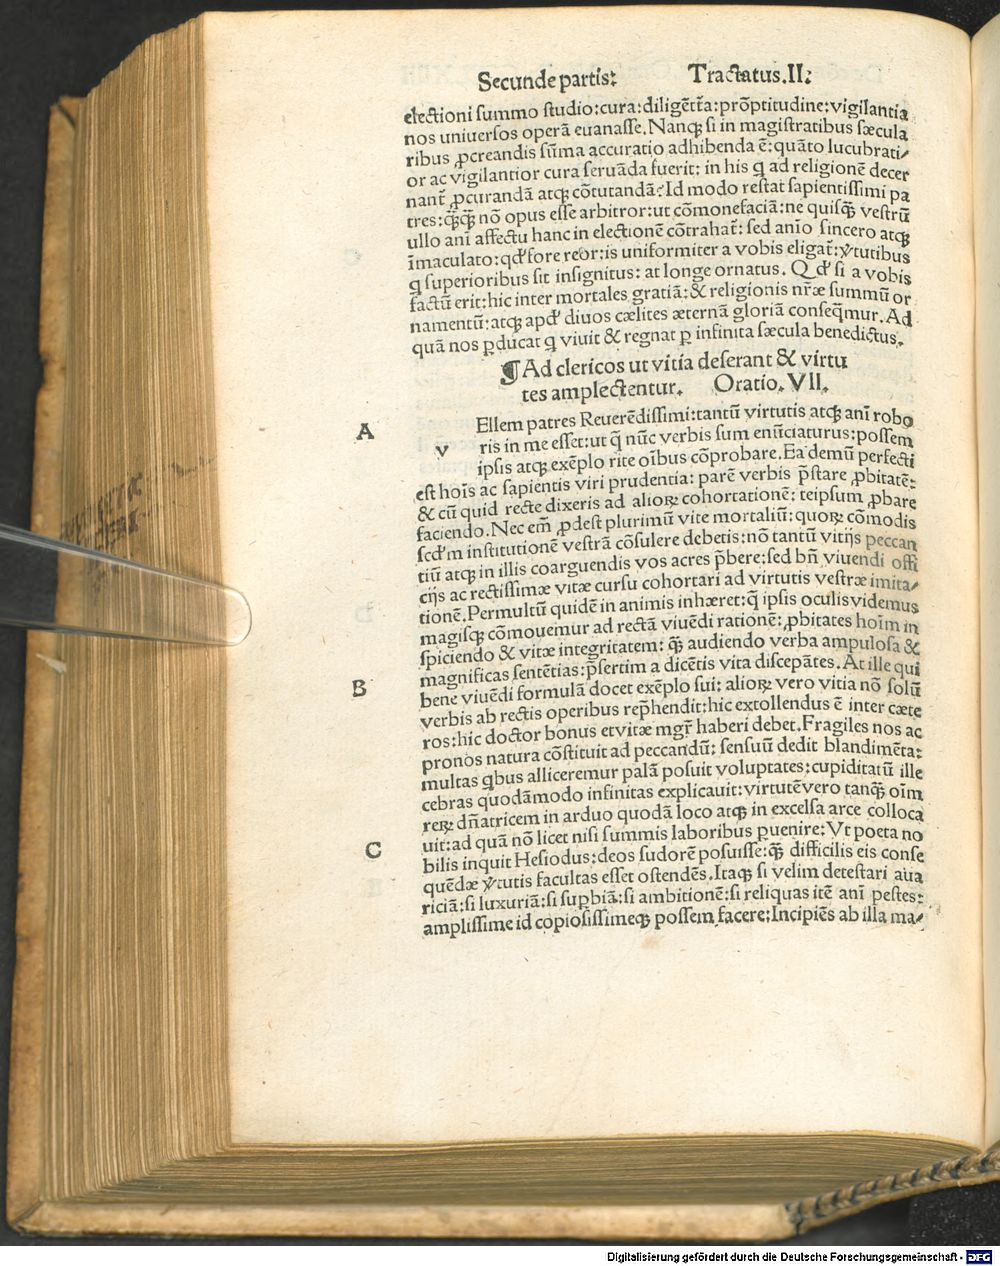 Secunde partis: Tractatus.II:
electioni summo studio:cura:diligẽtĩa:prõptitudine:vigilantia
nos uniuersos operã euanasse.Nanqȝ si in magistratibus sæcula
ribus ꝓcreandis sũma accuratio adhibenda ẽ:quãto lucubrati/
or ac vigilantior cura seruãda fuerit: in his q̃ ad religionẽ decer
nant̃ ꝓcurandã atqȝ cõtutandã?Id modo restat sapientissimi pa
tres:q̃q̃ nõ opus esse arbitror:ut cõmonefaciã:ne quisq̃ vestrũ
ullo ani affectu hanc in electionẽ cõtrahat̃: sed anĩo sincero atqȝ
ĩmaculato:qđ fore reor:is uniformiter a vobis eligat̃:ṽtutibus
q̃ superioribus sit insignitus: at longe ornatus. Qđ si a vobis
factũ erit:hic inter mortales gratiã:& religionis nr̃æ summũ or
namentũ:atqȝ apđ diuos cælites æternã gloriã conseq̃mur.Ad
quã nos ꝑducat q̃ viuit & regnat ꝑ infinita sæcula benedictus.
¶Ad clericos ut vitia deserant & virtu
tes amplectentur. Oratio.VII.
A
v
Ellem patres Reuerẽdissimi:tantũ virtutis atqȝ anĩ robo
ris in me esset:ut q̃ nũc verbis sum enũciaturus:possem
ipsis atqȝ exẽplo rite oĩbus cõprobare.Ea demũ perfecti
est hoĩs ac sapientis viri prudentia: parẽ verbis p̃stare ꝓbitatẽ:
& cũ quid recte dixeris ad alioꝝ cohortationẽ: teipsum ꝓbare
faciendo.Nec em̃ ꝓdest plurimũ vite mortaliũ:quoꝝ cõmodis
scđm institutionẽ vestrã cõsulere debetis:nõ tantũ vitijs peccan
tiũ atqȝ in illis coarguendis vos acres p̃bere:sed bñ viuendi offi
cijs ac rectissimæ vitæ cursu cohortari ad virtutis vestræ imita/
tionẽ.Permultũ quidẽ in animis inhæret:q̃ ipsis oculis videmus
magisqȝ cõmouemur ad rectã viuẽdi rationẽ:ꝓbitates hoĩm in
spiciendo & vitæ integritatem: q̃ audiendo verba ampulosa &
magnificas sentẽtias:p̃sertim a dicẽtis vita discepãtes.At ille qui
B
bene viuẽdi formulã docet exẽplo sui: alioꝝ vero vitia nõ solũ
verbis ab rectis operibus rep̃hendit:hic extollendus ẽ inter cæte
ros:hic doctor bonus et vitæ mgr̃ haberi debet.Fragiles nos ac
pronos natura cõstituit ad peccandũ: sensuũ dedit blandimẽta:
multas q̃bus alliceremur palã posuit voluptates:cupiditatũ ille
cebras quodãmodo infinitas explicauit:virtutẽ vero tanq̃ oĩm
reꝝ dñatricem in arduo quodã loco atqȝ in excelsa arce colloca
C
uit:ad quã nõ licet nisi summis laboribus ꝑuenire:Vt poeta no
bilis inquit Hesiodus:deos sudorẽ posuisse:q̃ difficilis eis conse
quẽdæ ṽtutis facultas esset ostendẽs.Itaqȝ si velim detestari aua
riciã:si luxuriã:si suꝑbiã:si ambitionẽ:si reliquas itẽ anĩ pestes:
amplissime id copiosissimeqȝ possem facere:Incipiẽs ab illa ma/
Digitalisierung gefördert durch die Deutsche Forschungsgemeinschaft - DFG